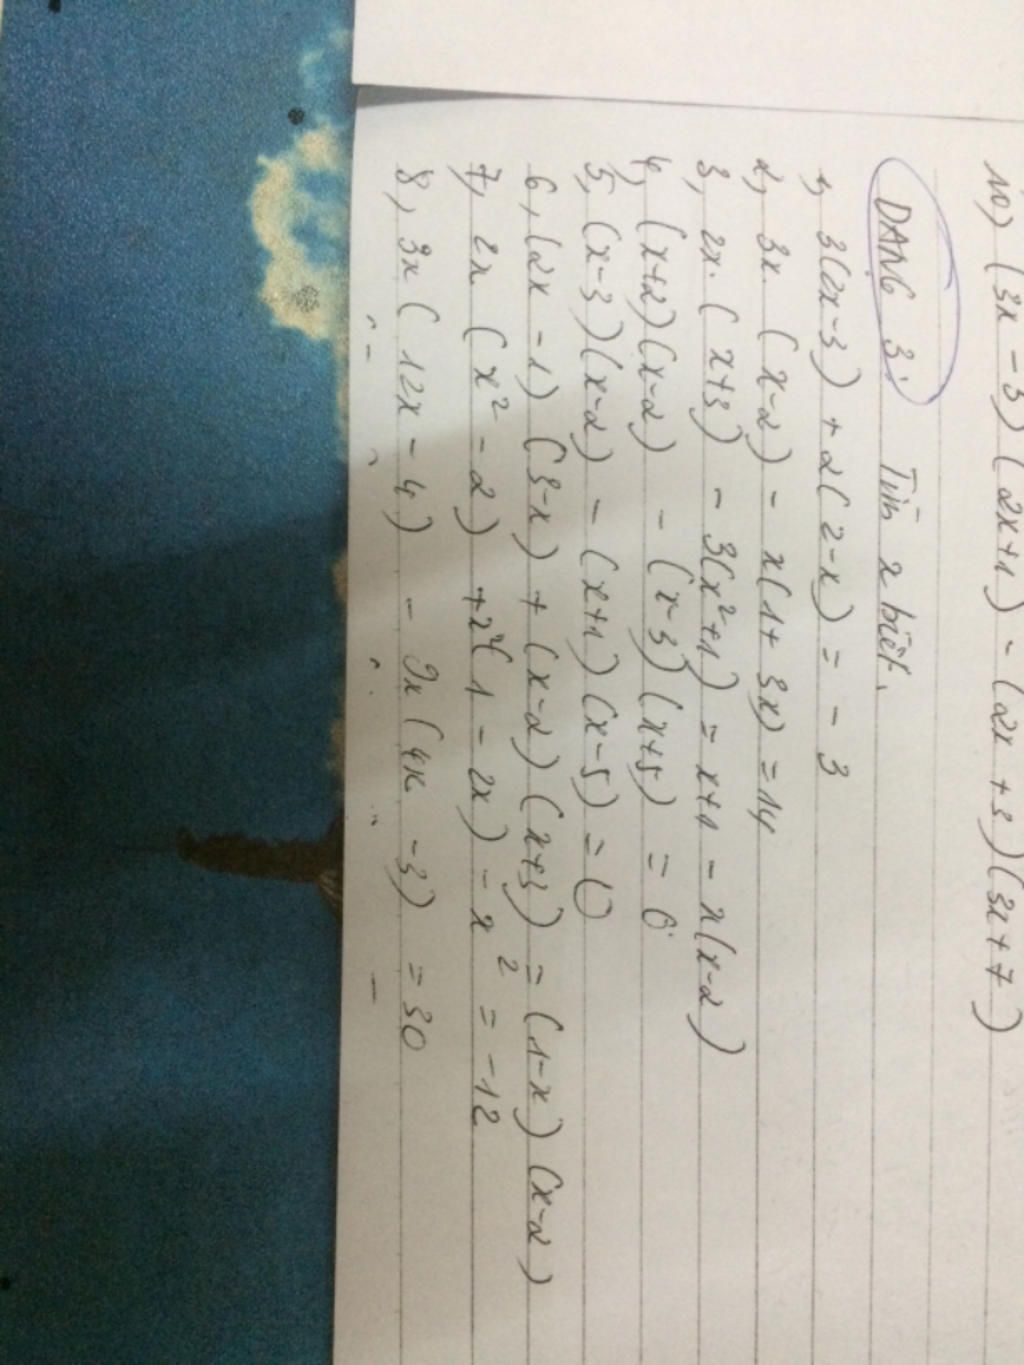 10) (3x - 3)(2x+1) - (2x + 3)(3x+7)
DẠNG 3: Tìm x biết.
1, 3(2x-3) + 2(2-x) = - 3
2, 3x. (x-2) - x(1+ 3x) = 14
3, 2x. (x+3) - 3(x²+1) = x+1 - x(x-2)
4, (x+2)(x-2) - (x-3)(x+5) = 0
5, (x-3)(x-2) - (x+1)(x-5) = 0
6, (2x - 1) (3-x) + (x-2) (x+3) = (1-x) (x-2)
7, 2x (x² - 2) + x²(1 - 2x) - x² = -12
8, 3x ( 12x - 4) - 9x (4x - 3) = 30